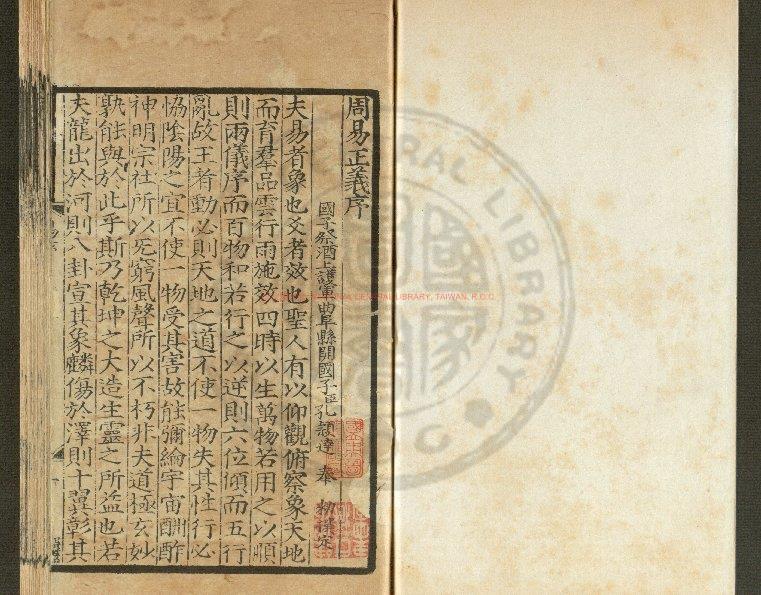 周易正義序
國子祭酒上護軍曲阜縣開國子臣孔穎達奉 勑撰定
夫易者象也爻者效也聖人有以仰觀俯察象天地
而育羣品雲行雨施效四時以生萬物若用之以順
則兩儀序而百物和若行之以逆則六位傾而五行
亂故王者動必則天地之道不使一物失其性行必
恊陰陽之宜不使一物受其害故能彌綸宇宙酬酢
神明宗社所以无窮風聲所以不朽非夫道極玄妙
孰能與於此乎斯乃乾坤之大造生靈之所益也若
夫龍出於河則八卦宣其象麟傷於澤則十翼彰其
CENTRAL LIBRARY, TAIWAN, R.O.C